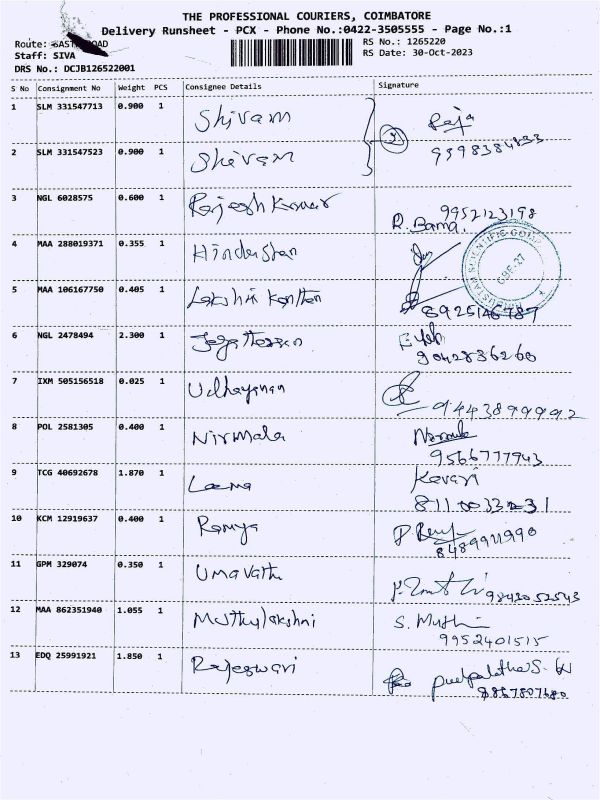 THE PROFESSIONAL COURIERS, COIMBATORE
Delivery Runsheet - PCX - Phone No.:0422-3505555 - Page No.:1
Route: ROAD
RS No.: 1265220
Staff: SIVA
RS Date: 30-Oct-2023
DRS No.: DCJB126522001
S No Consignment No Weight PCS Consignee Details Signature
1 SLM 331547713 0.900 1 Shivam Raja
2 SLM 331547523 0.900 1 Shivam
3 NGL 6028575 0.600 1 Rajesh Kumar 9952123198
R. Bama.
4 MAA 288019371 0.355 1 Hindustan
HINDUSTAN SCIENTIFIC CORP
CBE-27
5 MAA 106167750 0.405 1 Lakshmi Kanthan
8925146787
6 NGL 2478494 2.300 1 Jegatheesan
9042836260
7 IXM 505156518 0.025 1 Udhayanan
9443899992
8 POL 2581305 0.400 1 Nirmala
9566777943
9 TCG 40692678 1.870 1 Leema Kavari
10 KCM 12919637 0.400 1 Ramya
8489911990
11 GPM 329074 0.350 1 Umavathi
9843052543
12 MAA 862351940 1.055 1 Muthulakshni S. Muthu
9952401515
13 EDQ 25991921 1.850 1 Rajeswari
8867807680